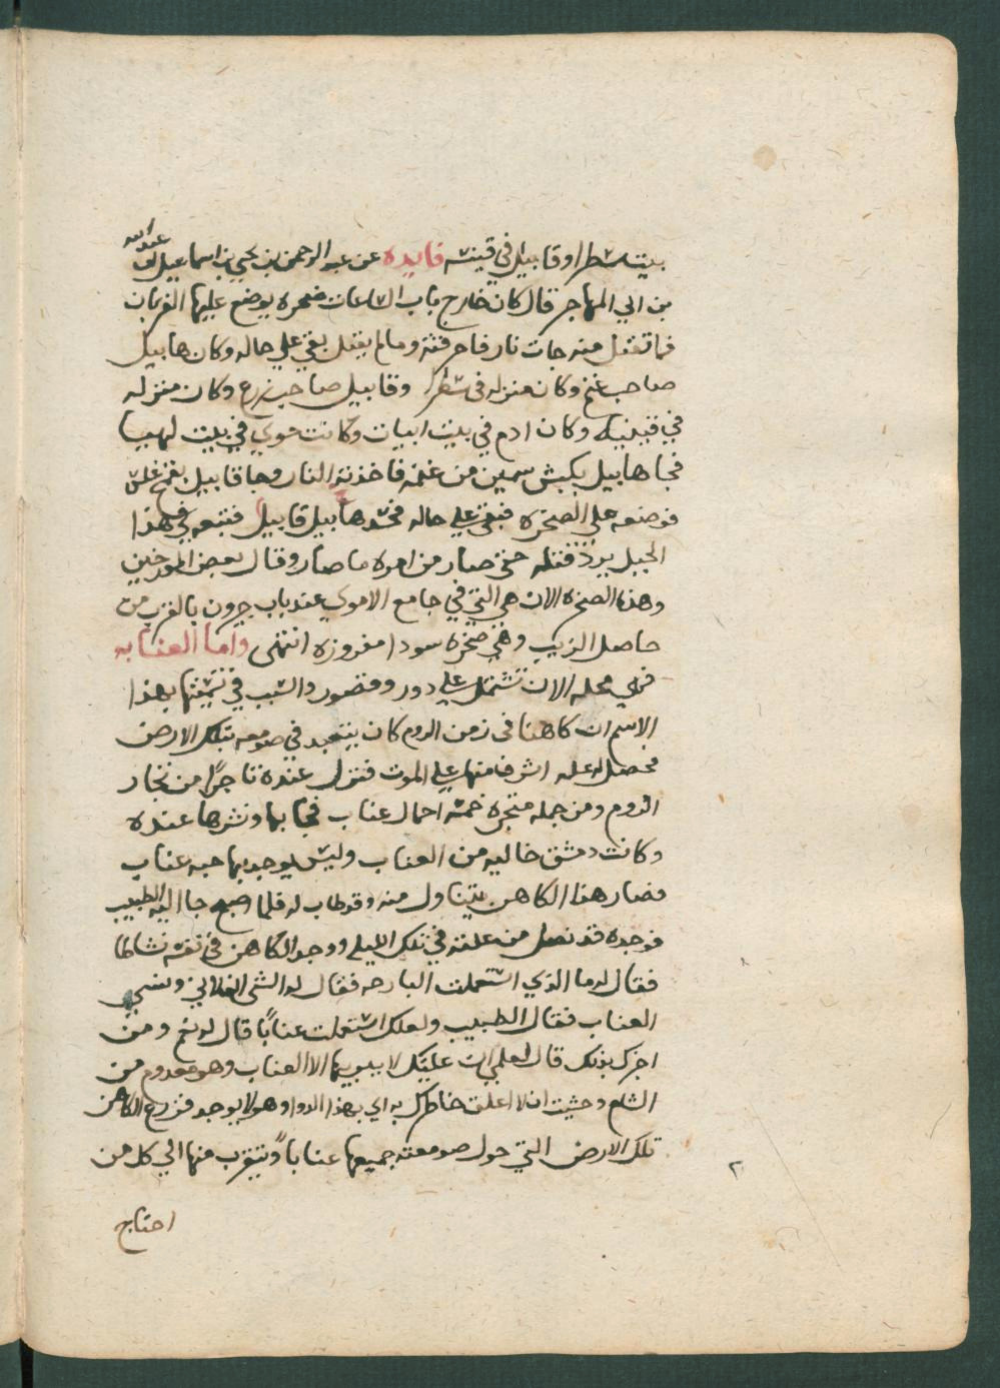 بيت سطرا وقابيل في قينيه فايده عن عبد الرحمن بن يحيى بن اسماعيل بن عبد الله
بن ابي المهاجر قال كان خارج باب الساعات صخره يوضع عليها القربان
فما تقبل منه جات نار فاحرقته وما لم يقبل بقي علي حاله وكان هابيل
صاحب غنم وكان منزله في سطرا وقابيل صاحب زرع وكان منزله
في قينيه وكان ادم في بيت ابيات وكانت حوي في بيت لهيا
فجا هابيل بكبش سمين من غنمه فاخذته النار وجا قابيل بقمح غلث
فوضعه علي الصخره فبقي علي حاله فحسد هابيل قابيل فتبعه في هذا
الجبل يريد قتله حتى صار من امره ما صار وقال بعض المورخين
وهذه الصخره الان هي التي في جامع الاموي عند باب جيرون بالقرب من
حاصل الزيت وهي صخره سودا مفروزه انتهى واما العنابه
فهي محله الان تشتمل علي دور وقصور والسبب في تسميتها بهذا
الاسم ان كاهنا في زمن الروم كان يتعبد في صومعه بتلك الارض
فحصل له عله اشرف منها علي الموت فنزل عنده تاجرًا من تجار
الروم ومن جمله متجره خمسه احمال عناب فجا بها ونشرها عنده
وكانت دمشق خاليه من العناب وليس يوجد بها حبه عناب
فصار هذا الكاهن يتناول منه وقد طاب له فلما اصبح جا اليه الطبيب
فوجده قد نصل من علته في تلك الليله ووجد الكاهن في نفسه نشاطا
فقال له ما الذي استعملت البارحه فقال له الشى الفلاني ونسي
العناب فقال الطبيب ولعلك استعملت عنابًا قال له نعم ومن
اخبرك بذلك قال لعلمي ان علتك لا يبريها الا العناب وهو معدوم من
الشام وخشيت ان لا اعلق خاطرك به اي بهذا الدوا وهو لا يوجد فزرع الكاهن
تلك الارض التي حول صومعته جميعها عنابًا ويتقرب منها الي كل من
احتاج
٢